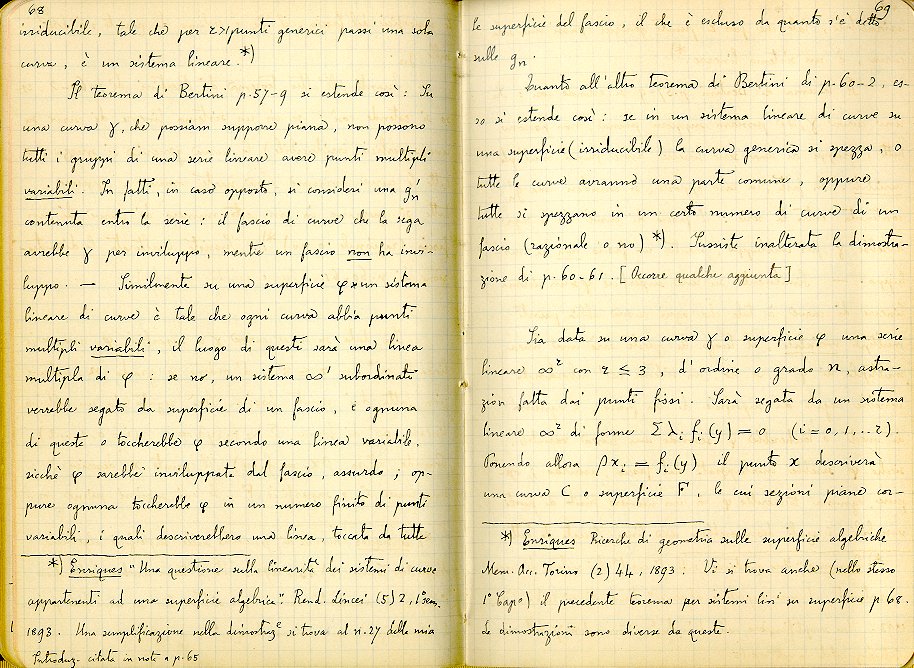 68
irriducibile, tale che per r>1 punti generici passi una sola
curva, è un sistema lineare.*)
Il teorema di Bertini p.57-9 si estende così: Su
una curva γ, che possiam supporre piana, non possono
tutti i gruppi di una serie lineare avere punti multipli
variabili. In fatti, in caso opposto, si consideri una g'n
contenuta entro la serie: il fascio di curve che la sega
avrebbe γ per inviluppo, mentre un fascio non ha invi-
luppo. — Similmente su una superficie φ un sistema
lineare di curve è tale che ogni curva abbia punti
multipli variabili, il luogo di questi sarà una linea
multipla di φ: se no, un sistema ∞' subordinato
verrebbe segato da superficie di un fascio, e ognuna
di queste o toccherebbe φ secondo una linea variabile,
sicchè φ sarebbe inviluppata dal fascio, assurdo; op-
pure ognuna toccherebbe φ in un numero finito di punti
variabili, i quali descriverebbero una linea, toccata da tutte
*) Enriques "Una questione sulla linearità dei sistemi di curve
appartenenti ad una superficie algebrica". Rend. Lincei (5) 2, 1° sem.
1893. Una semplificazione nella dimostraze si trova al n.27 della mia
Introduz. citata in nota a p.65
69
le superficie del fascio, il che è escluso da quanto s'è detto
sulle gn.
Quanto all'altro teorema di Bertini di p.60-2, es-
so si estende così: se in un sistema lineare di curve su
una superficie (irriducibile) la curva generica si spezza, o
tutte le curve avranno una parte comune, oppure
tutte si spezzano in un certo numero di curve di un
fascio (razionale o no) *). Sussiste inalterata la dimostra-
zione di p.60-61. [Occorre qualche aggiunta]
Sia data su una curva γ o superficie φ una serie
lineare ∞r con r ≤ 3, d'ordine o grado n, astra-
zion fatta dai punti fissi. Sarà segata da un sistema
lineare ∞r di forme Σλi fi(y) = 0 (i=0,1,..r).
Ponendo allora ρxi = fi(y) il punto x descriverà
una curva C o superficie F, le cui sezioni piane cor-
*) Enriques Ricerche di geometria sulle superficie algebriche
Mem. Acc. Torino (2) 44, 1893. Vi si trova anche (nello stesso
1° Capo) il precedente teorema per sistemi lini su superficie p 68.
Le dimostrazioni sono diverse da queste.